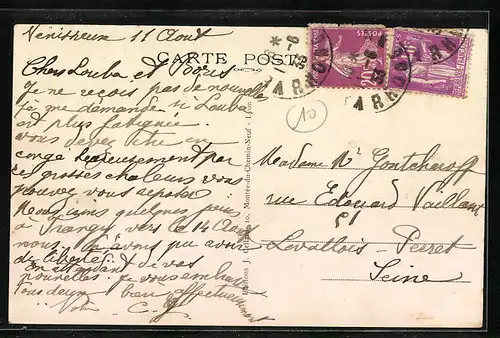 Vénissieux 11 Aout
CARTE POSTALE
Chers Louba et Boris
Je ne reçois pas de nouvelles
je me demande si Louba
est plus fatiguée.
vous devez être en
congé heureusement par
ces grosses chaleurs vous
pouvez vous reposer
Nous irons quelques jours
à Trangy vers le 14 Aout
nous avons pu avoir
de libertés
En attendant de vos
nouvelles je vous embrasse
tous deux bien affectueusement
Madame Mr Gontcharoff
rue Edouard Vaillant
51
Levallois-Perret
Seine
10
POSTES
20c
Editions J. Montée-du-Chemin-Neuf - Lyon